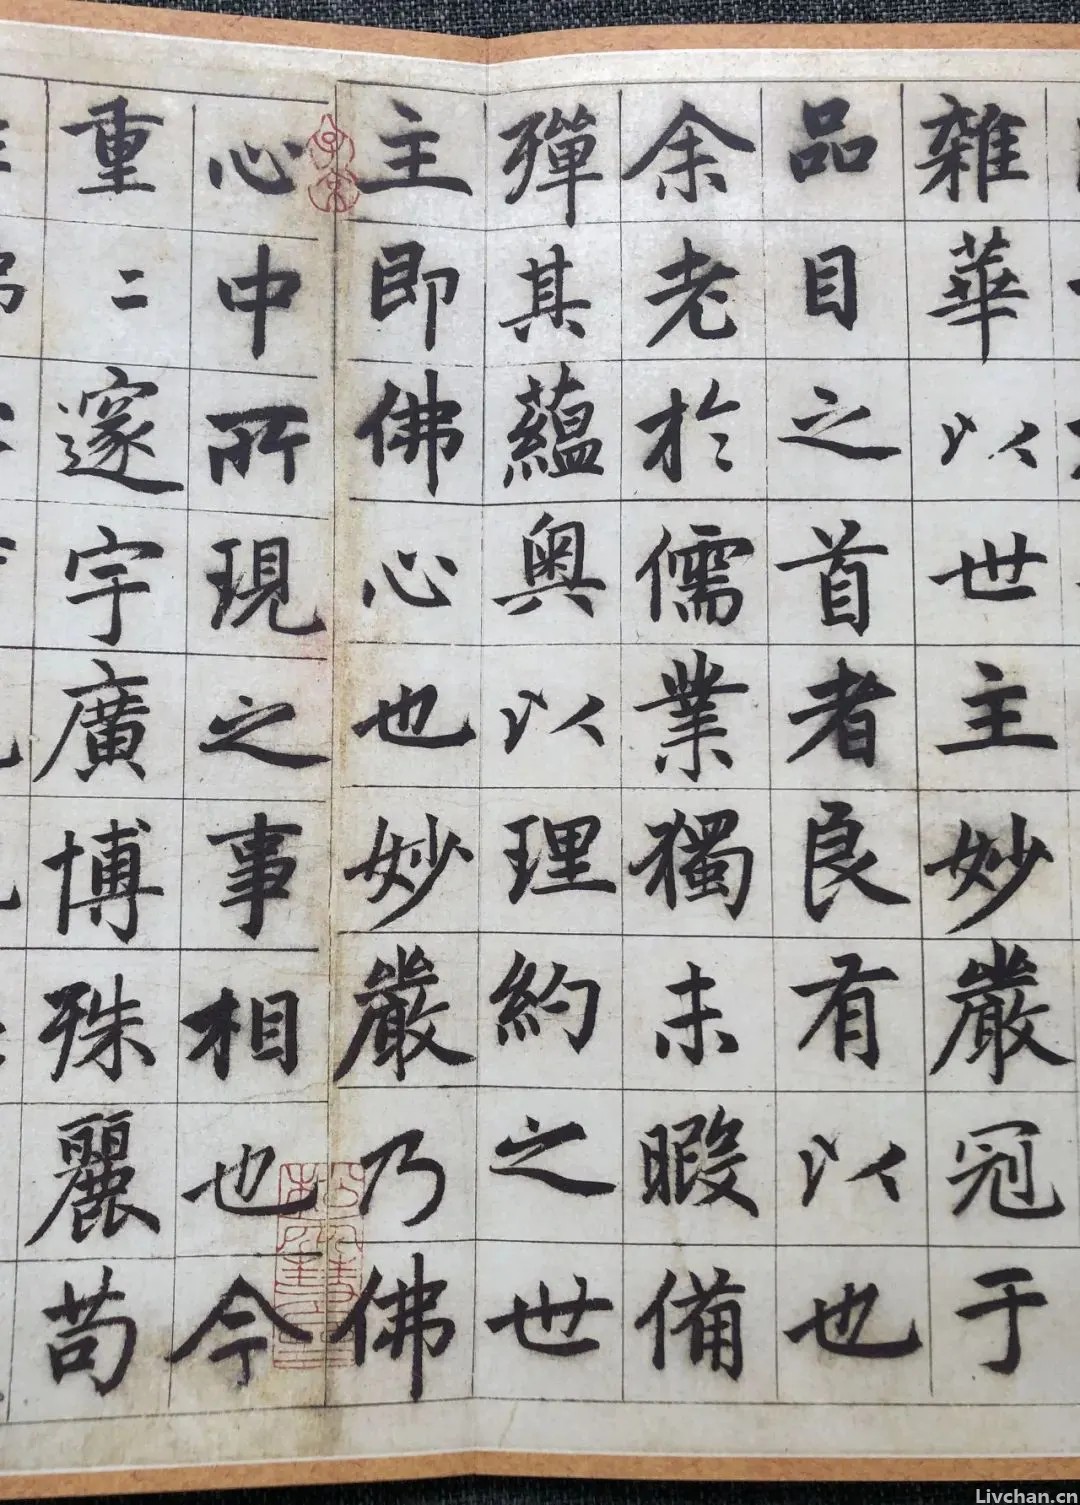 雜華以世主妙嚴冠于
品目之首者良有以也
余老於儒業獨未暇備
殫其蘊奧以理約之世
主即佛心也妙嚴乃佛
心中所現之事相也今
重二邃宇廣博殊麗苟
Livchan.cn